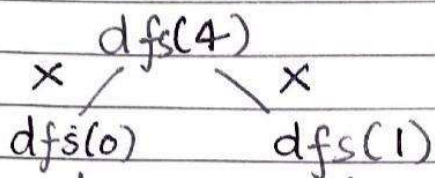 dfs(4)
× ×
dfs(0) dfs(1)